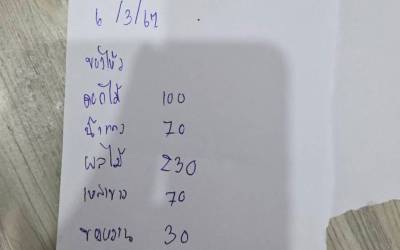 6/3/67
ของไหว้
ดอกไม้ 100
น้ำแดง 70
ผลไม้ 230
เหล้าขาว 70
ของหวาน 30